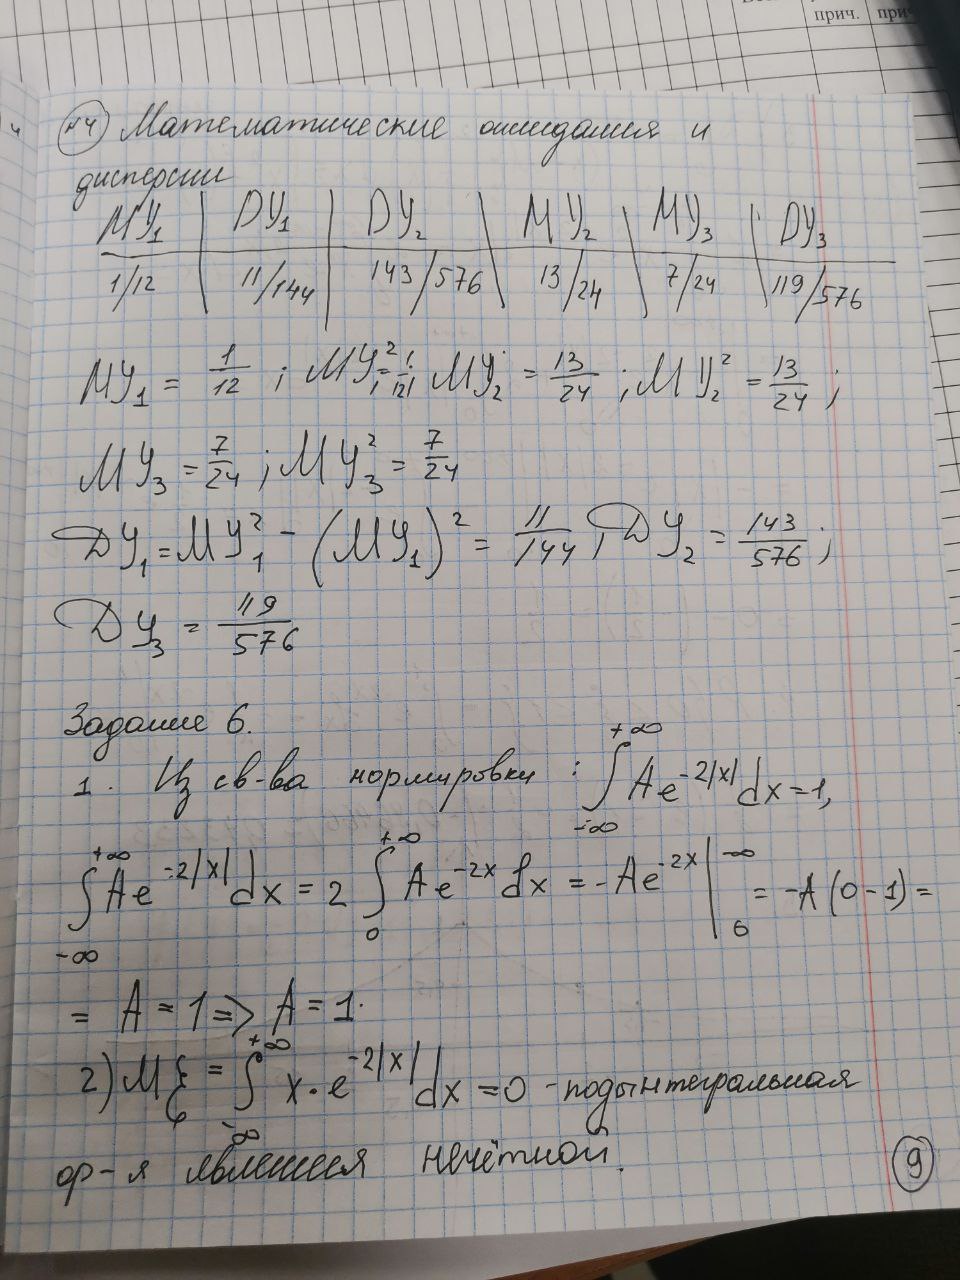 прич.
при
ч
№4 Математические ожидания и
дисперсии
MY₁ | DY₁ | DY₂ | MY₂ | MY₃ | DY₃
1/12 | 11/144 | 143/576 | 13/24 | 7/24 | 119/576
MY₁ = 1/12 ; MY₁² = 1/12 ; MY₂ = 13/24 ; MY₂² = 13/24 ;
MY₃ = 7/24 ; MY₃² = 7/24
DY₁ = MY₁² - (MY₁)² = 11/144 ; DY₂ = 143/576 ;
DY₃ = 119/576
Задание 6.
1. Из св-ва нормировки : ∫_{-∞}^{+∞} Ae^{-2|x|} dx = 1,
∫_{-∞}^{+∞} Ae^{-2|x|} dx = 2 ∫_0^{+∞} Ae^{-2x} dx = -Ae^{-2x} |_0^{-∞} = -A (0-1) =
= A = 1 => A = 1.
2) Mξ = ∫_{-∞}^{+∞} x · e^{-2|x|} dx = 0 - подынтегральная
ф-я является нечётной.
9